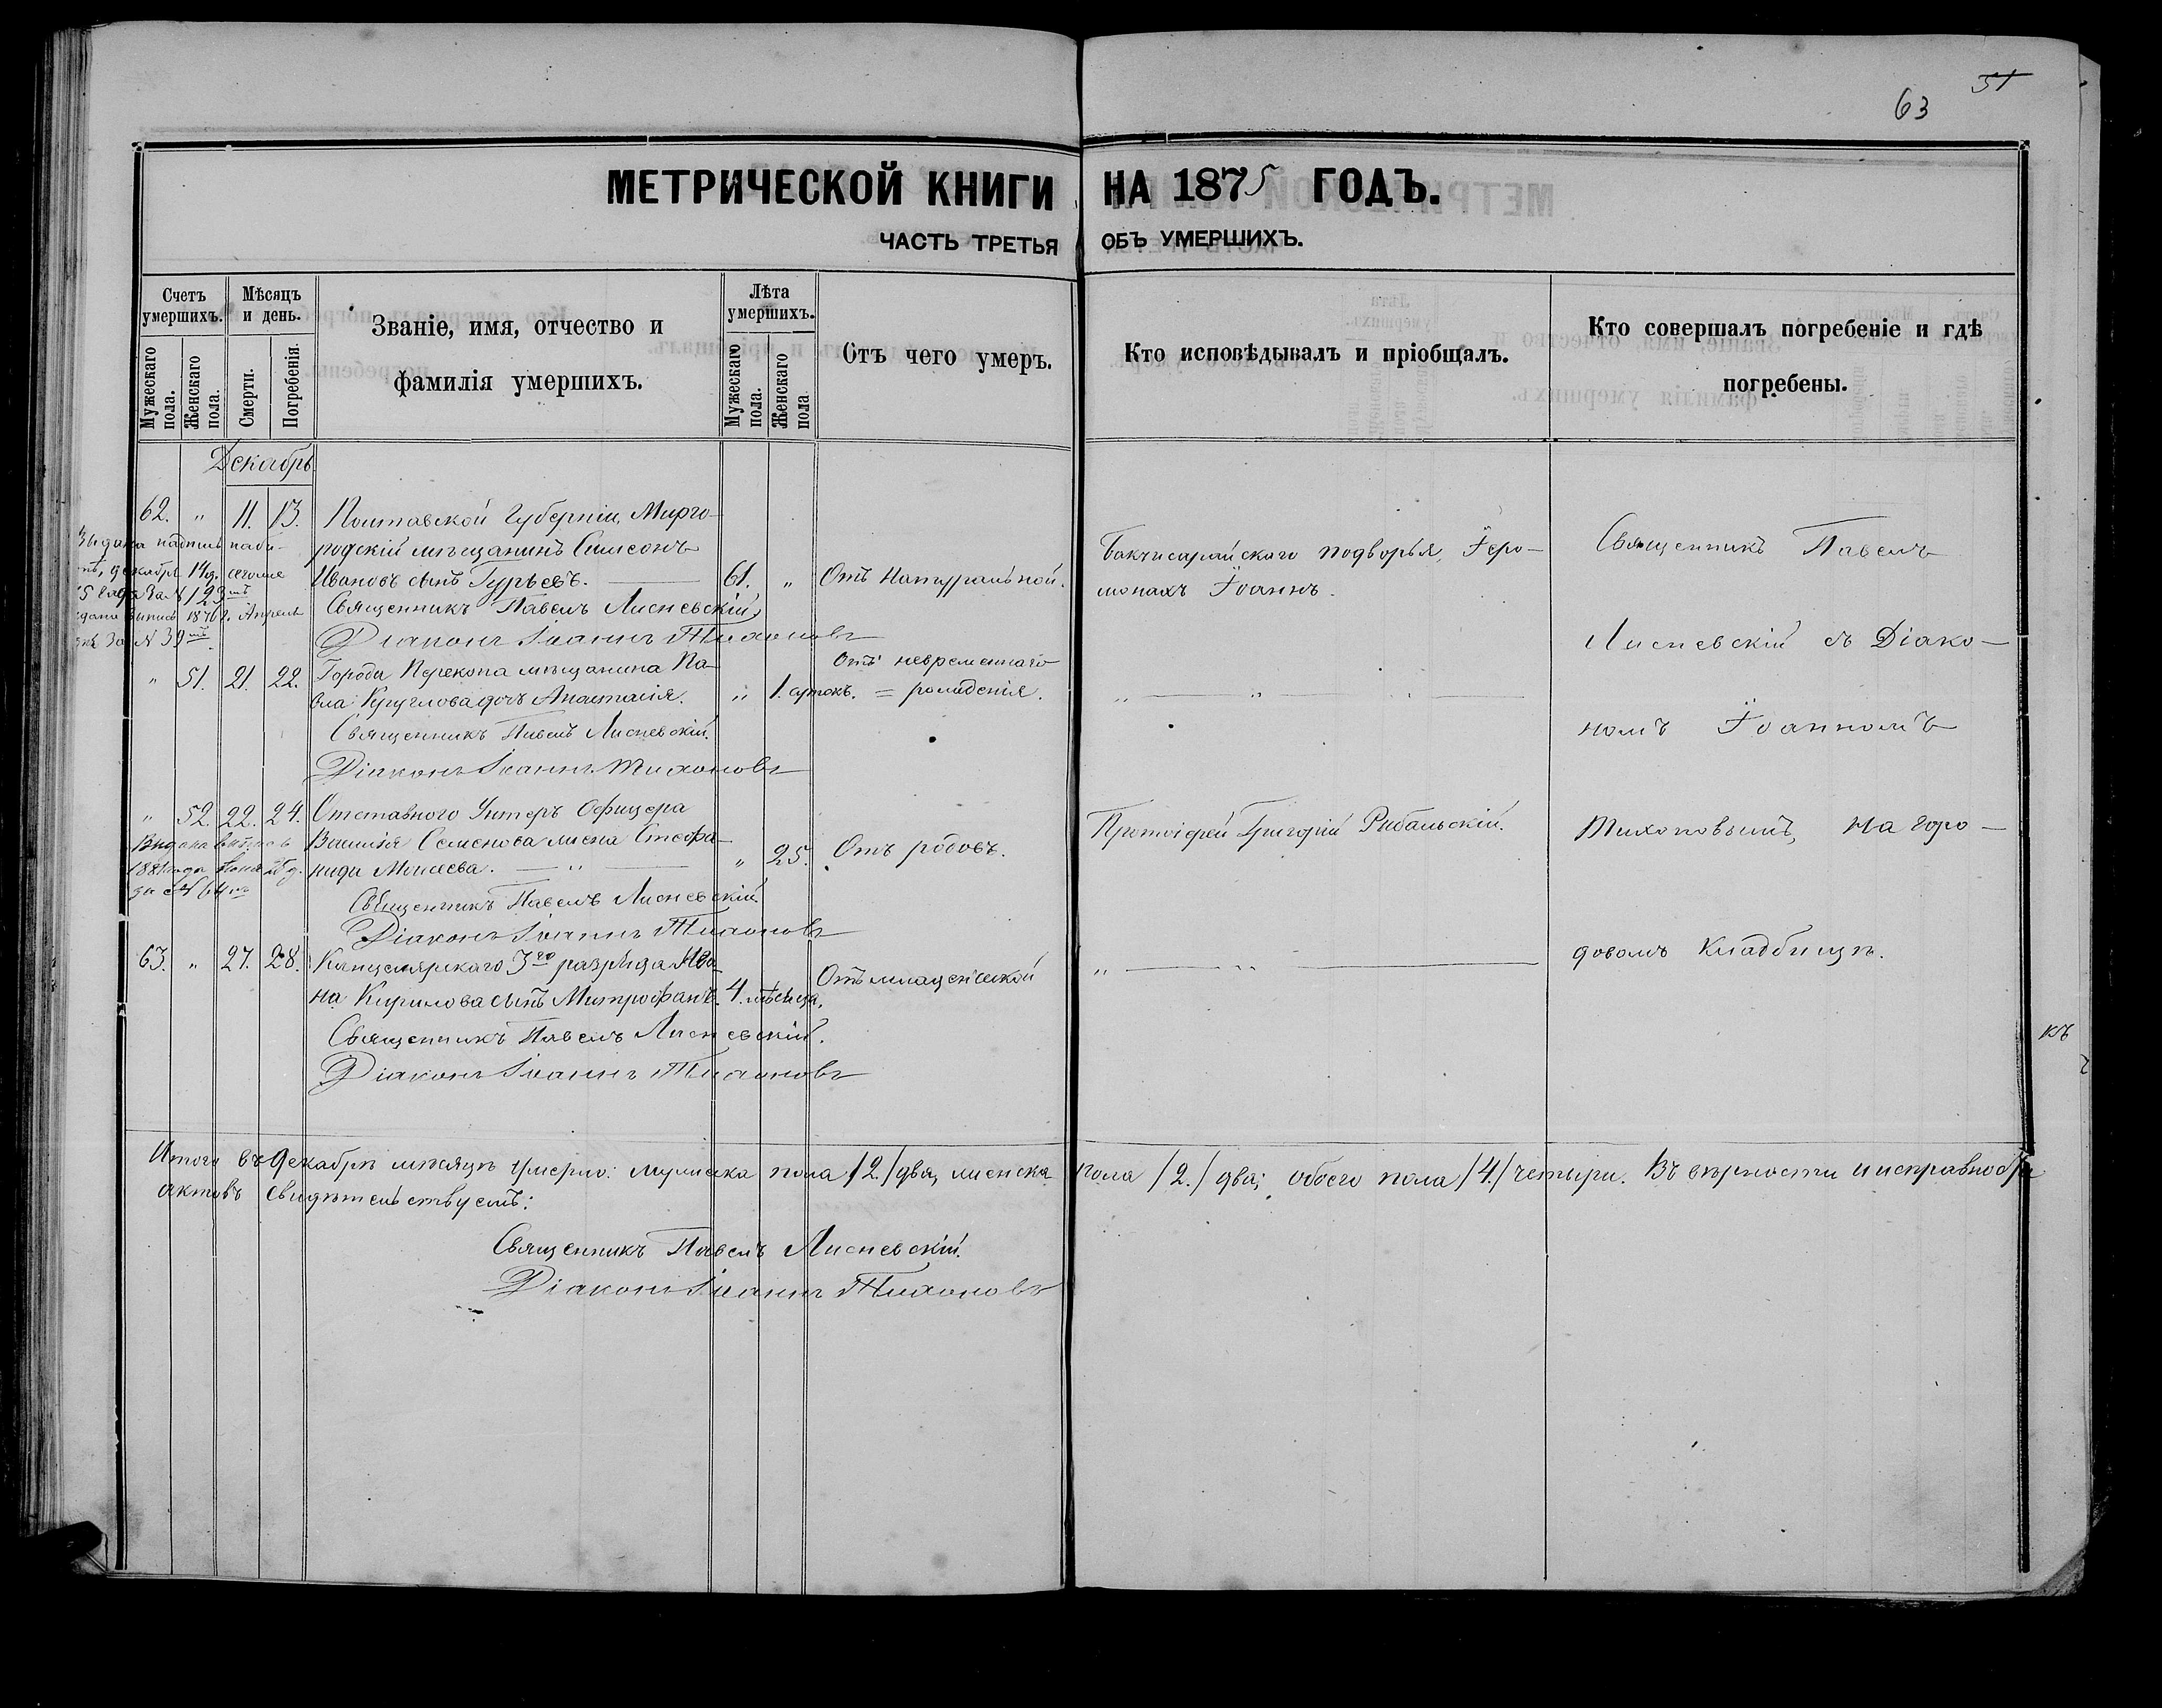 51
63
МЕТРИЧЕСКОЙ КНИГИ НА 1875 ГОДЪ.
ЧАСТЬ ТРЕТЬЯ ОБЪ УМЕРШИХЪ.
Счетъ умершихъ.
Мужескаго пола.
Женскаго пола.
Мѣсяцъ и день.
Смерти.
Погребенія.
Званіе, имя, отчество и
фамилія умершихъ.
Лѣта умершихъ.
Мужескаго пола.
Женскаго пола.
Отъ чего умеръ.
Кто исповѣдывалъ и пріобщалъ.
Кто совершалъ погребеніе и гдѣ
погребены.
Декабрь
62. " 11. 13. Полтавской Губерніи, Мирго-
родскій мѣщанинъ Симеонъ
Ивановъ сынъ Гурьевъ. 61. " Отъ Натуральной.
Бакчисарайскаго подворья, Іеро-
монахъ Іоаннъ.
Священникъ Павелъ Лисневскій
Діаконъ Іоаннъ Тихоновъ
декабря 14 д. сего
года за № 123
1876 г. Апрѣля
за № 39
" 51. 21. 22. Города Перекопа мѣщанина Па-
вла Круглова дочь Анастасія. " 1. сутокъ. Отъ невременнаго
= рожденія.
Священникъ Павелъ Лисневскій.
Діаконъ Іоаннъ Тихоновъ
" 52. 22. 24. Отставного Унтеръ Офицера
Василія Семенова жена Стефа-
нида Моисеева. " 25. Отъ родовъ.
Протоіерей Григорій Рибальскій.
Выдана выпись
188 года
за № 64
Священникъ Павелъ Лисневскій.
Діаконъ Іоаннъ Тихоновъ
63. " 27. 28. Канцелярскаго 3го разряда Ива-
на Кирилова сынъ Митрофанъ. 4. мѣсяца. Отъ младенческой
Священникъ Павелъ Лисневскій.
Діаконъ Іоаннъ Тихоновъ
Священникъ Павелъ
Лисневскій съ Діако-
номъ Іоанномъ
Тихоновымъ, на горо-
довомъ Кладбищѣ.
къ
Итого въ Декабрѣ мѣсяцѣ умерло: мужеска пола /2./ два, женска пола /2./ два; обоего пола /4./ четыри. Въ вѣрности и исправности
актовъ свидѣтельствуемъ:
Священникъ Павелъ Лисневскій.
Діаконъ Іоаннъ Тихоновъ